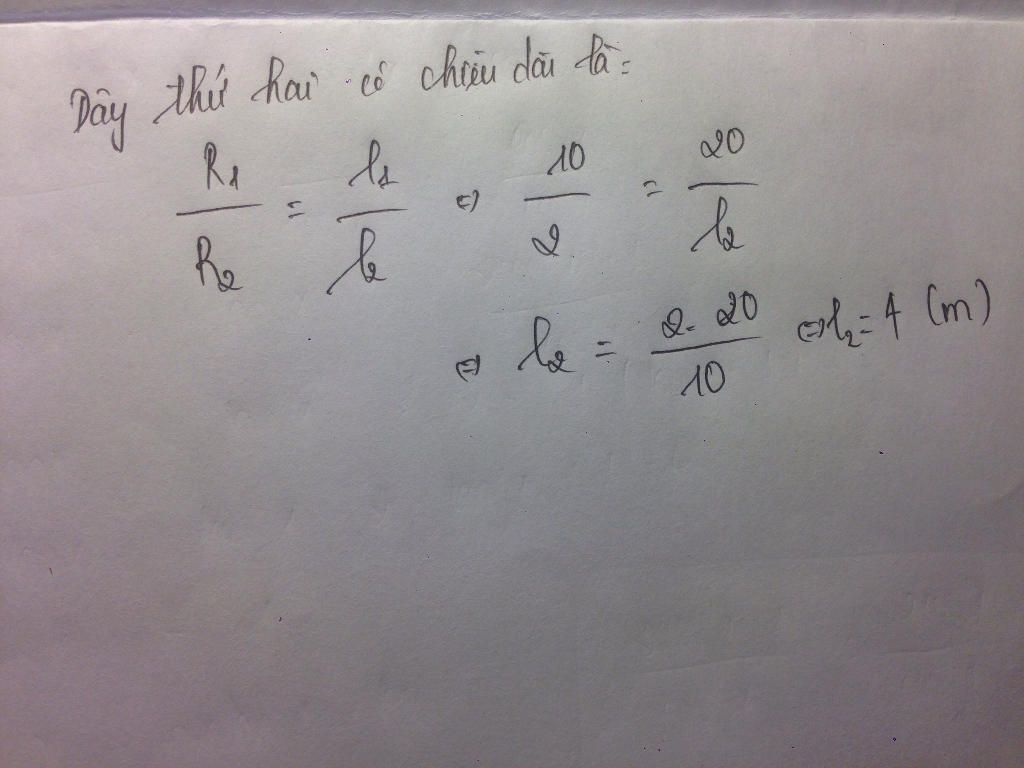 Dây thứ hai có chiều dài là:
R1/R2 = l1/l2 ⇔ 10/2 = 20/l2
⇔ l2 = 2.20/10 ⇔ l2 = 4 (m)